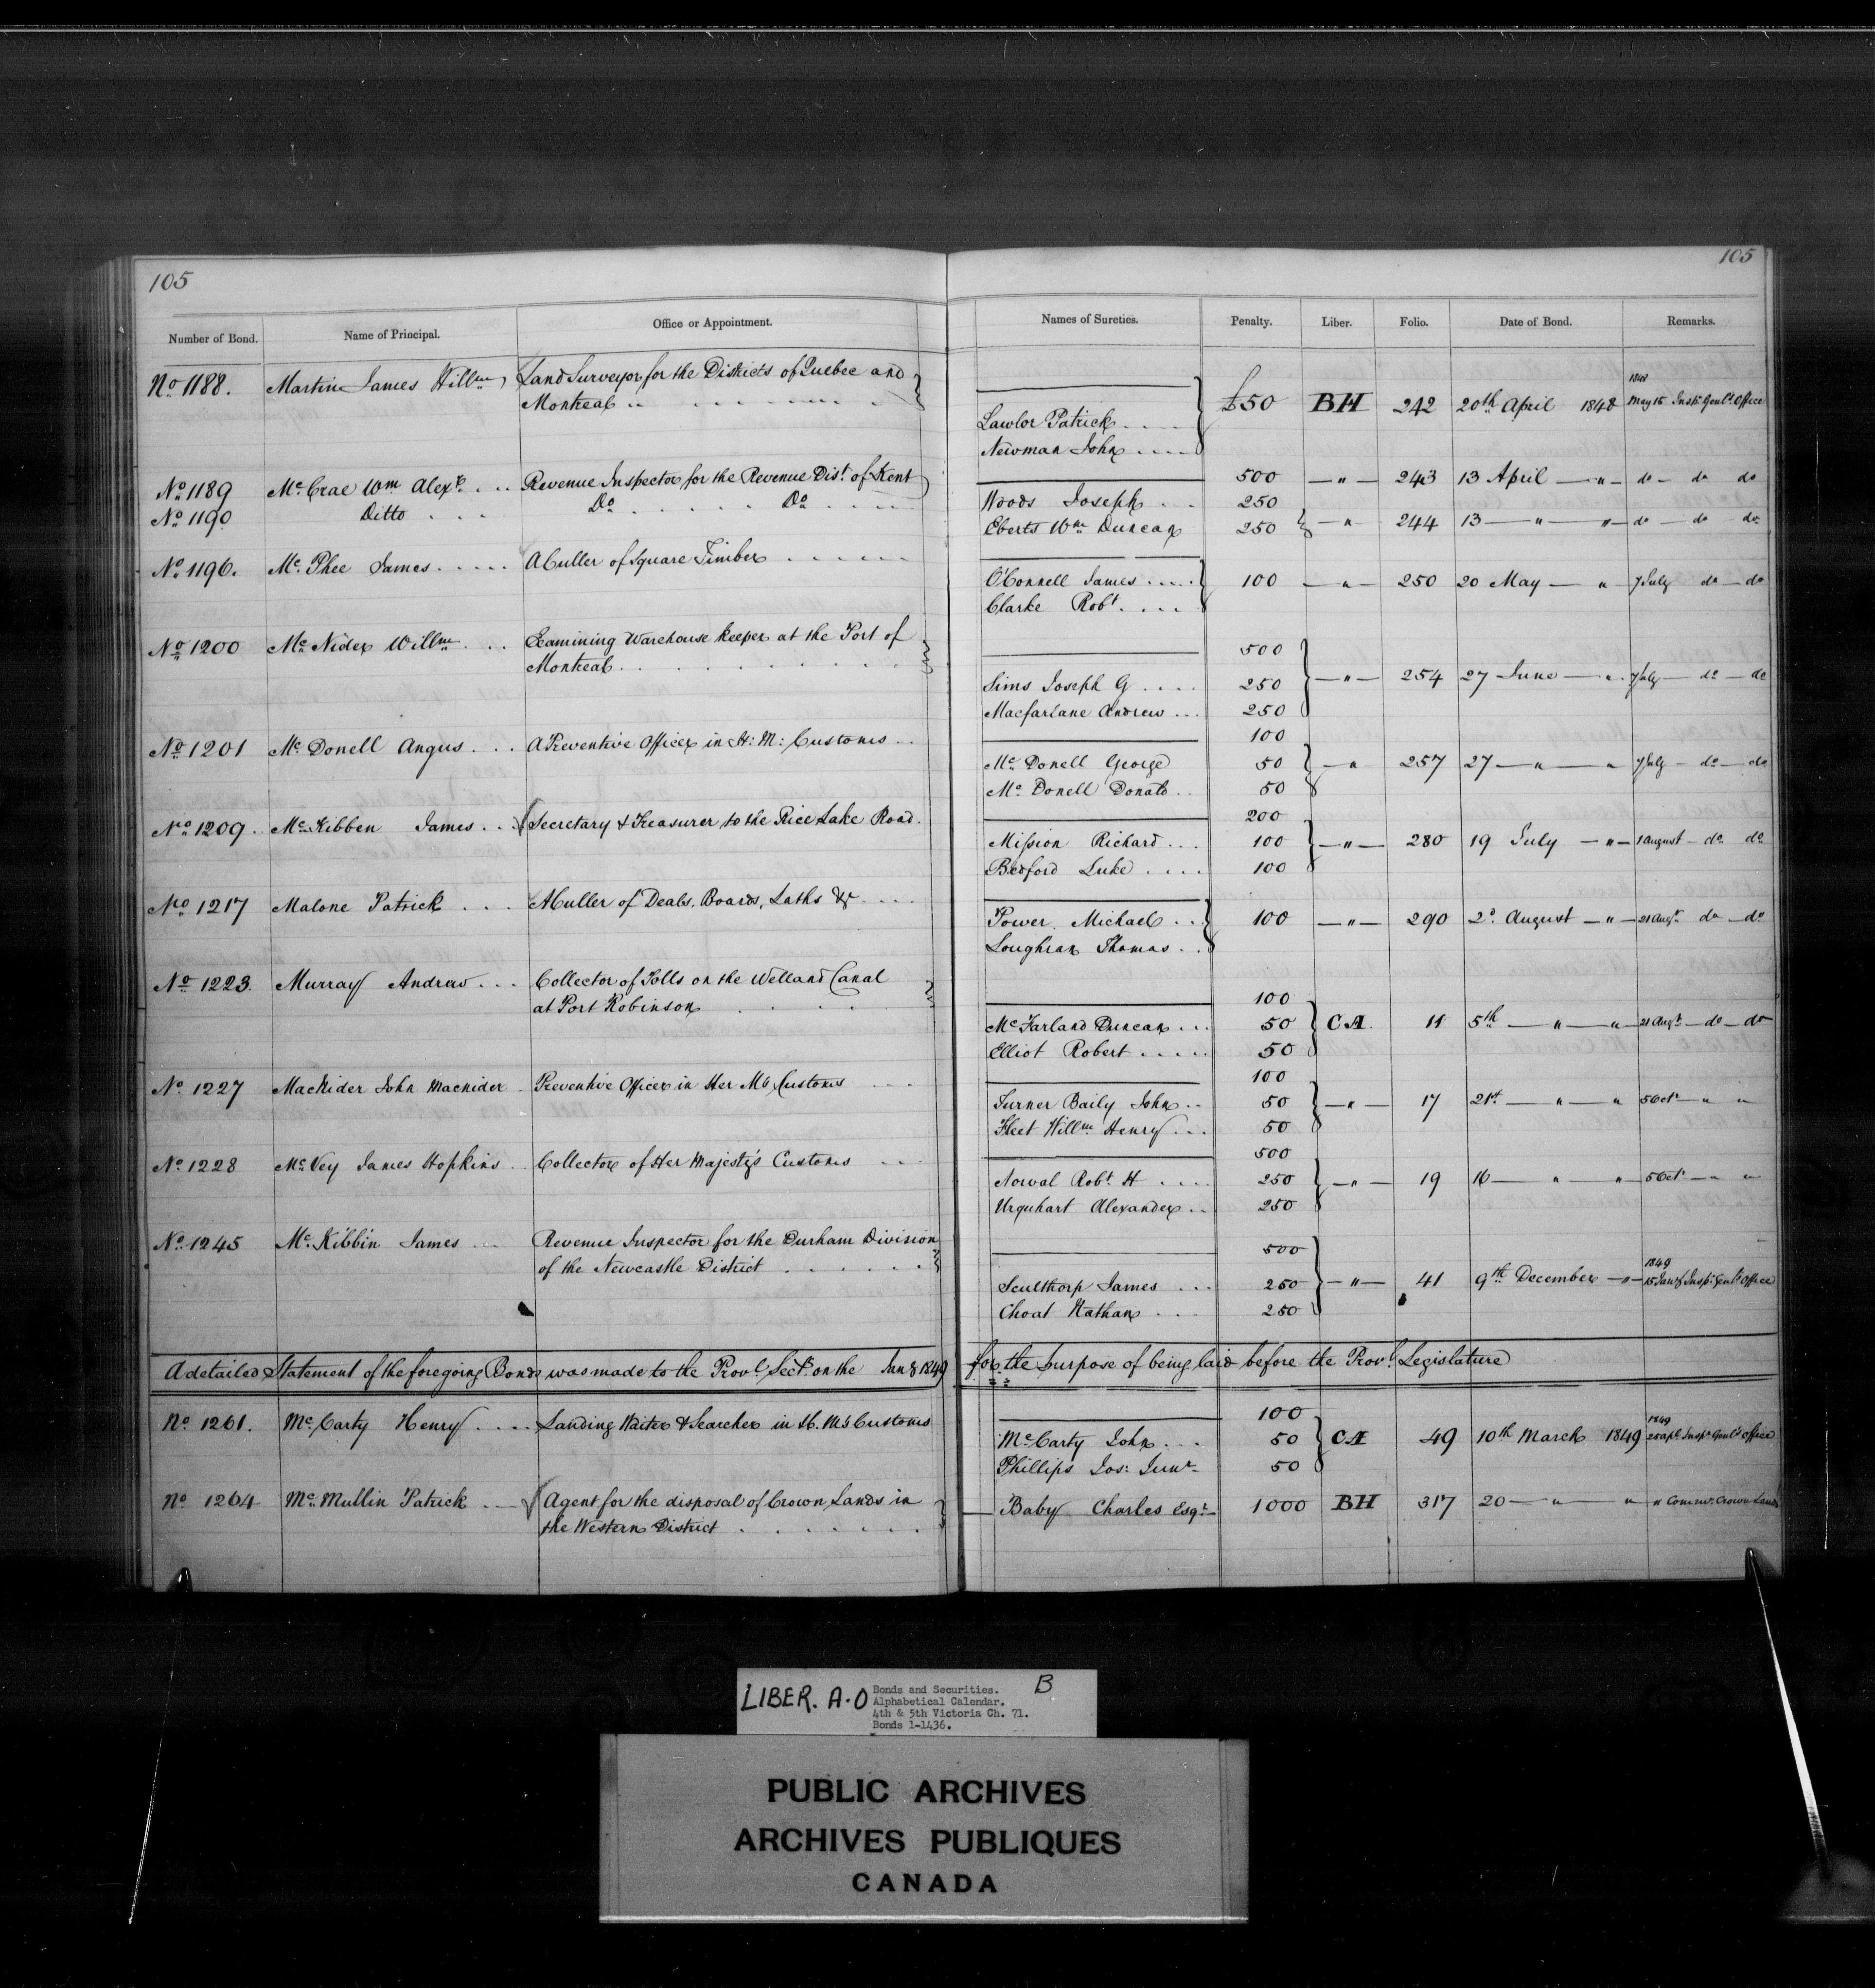 105
105
Number of Bond. Name of Principal. Office or Appointment. Names of Sureties. Penalty. Liber. Folio. Date of Bond. Remarks.
No 1188. Martin James Willm Land Surveyor for the Districts of Quebec and
Montreal
£50 BH 242 20th April 1848 1848 May 15 Inspr Genl's Office
Lawlor Patrick
Newman John
No 1189 McCrae Wm Alexr Revenue Inspector for the Revenue Dist. of Kent 500 — " — 243 13 April — " — do — do do
No 1190 Ditto Do Do
Woods Joseph 250
Eberts Wm Duncan 250 — " 244 13 — " — " — do — do — do
No 1196. Mc Phee James A Culler of Square Timber
O'Connell James 100 — " — 250 20 May — " 7 July do — do
Clarke Robt.
No 1200 Mc Nider Willm Examining Warehouse keeper at the Port of
Montreal
500
Sims Joseph G 250 — " — 254 27 June — " 7 July — do — do
Macfarlane Andrew 250
No 1201 Mc Donell Angus A Preventive Officer in H: M: Customs 100
Mc Donell George 50 — " 257 27 — " — " 7 July — do — do
Mc Donell Donald 50
No 1209. Mc Kibben James Secretary & Treasurer to the Rice Lake Road. 200
Mission Richard 100 — " — 280 19 July — " — 1 August — do do
Bedford Luke 100
No 1217 Malone Patrick A Culler of Deals, Boards, Laths &c
Power Michael 100 — " — 290 2d August — " — 21 Augt do — do
Loughran Thomas
No 1223. Murray Andrew Collector of Tolls on the Welland Canal
at Port Robinson
100
McFarland Duncan 50 CA. 11 5th — " — " — 21 Augt — do — do
Elliot Robert 50
No 1227 MacNider John Macnider Preventive Officer in Her M's Customs 100
Turner Baily John 50 — " — 17 21st — " — " 5 Oct " "
Fleet Willm Henry 50
No 1228 McVey James Hopkins Collector of Her Majesty's Customs 500
Norval Robt H 250 — " — 19 16 — " — " — 5 Oct — " "
Urquhart Alexander 250
No 1245 Mc Kibbin James Revenue Inspector for the Durham Division
of the Newcastle District
500
Sculthorp James 250 — " — 41 9th December — " — 1849 15 Jany Inspr Genl's Office
Choat Nathan 250
A detailed Statement of the foregoing Bonds was made to the Provl Secty on the Jan 8 1849 for the purpose of being laid before the Provl Legislature
No 1261. Mc Carty Henry Landing Waiter & Searcher in H. M's Customs 100
McCarty John 50 CA 49 10th March 1849 1849 25 Apl Inspr Genl's Office
Phillips Jos: Junr 50
No 1264 McMullin Patrick Agent for the disposal of Crown Lands in
the Western District
Baby Charles Esqr 1000 BH 317 20 — " — " " Commr Crown Lands
LIBER. A-O
Bonds and Securities.
Alphabetical Calendar.
4th & 5th Victoria Ch. 71.
Bonds 1-1436.
B
PUBLIC ARCHIVES
ARCHIVES PUBLIQUES
CANADA